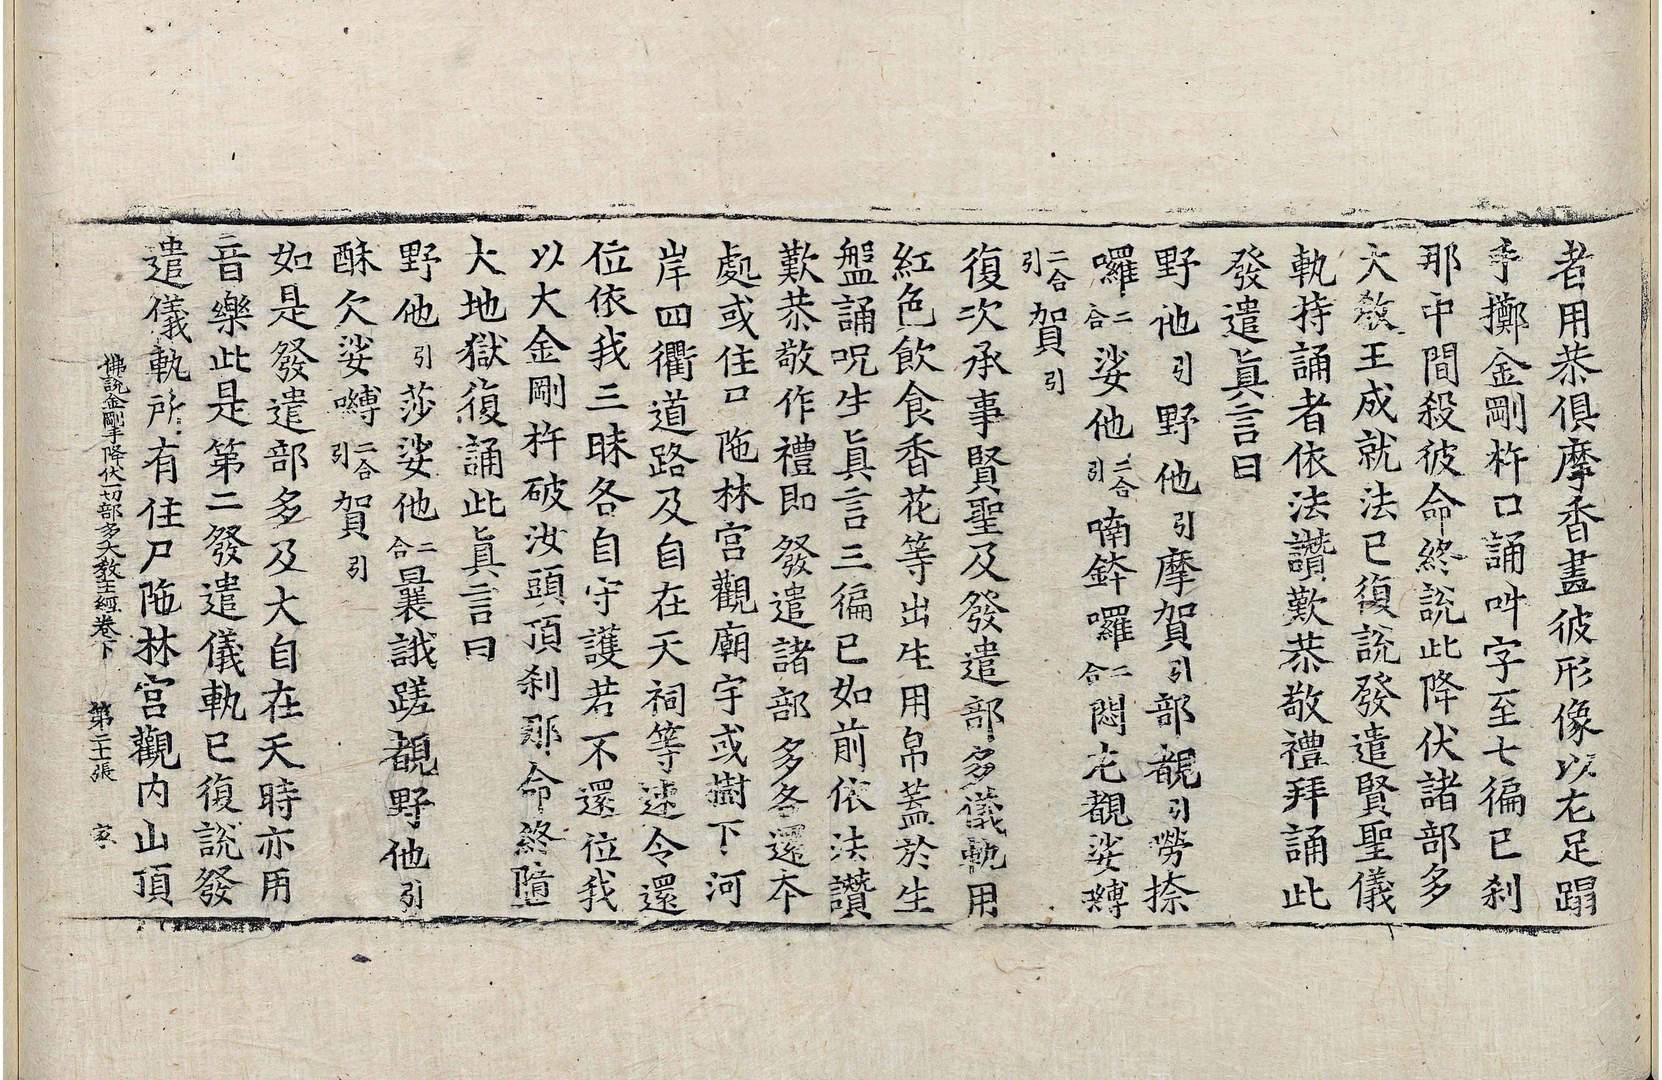 者用恭俱摩香畫彼形像以左足蹋
手擲金剛杵口誦吽字至七徧已刹
那中間殺彼命終說此降伏諸部多
大教王成就法已復說發遣賢聖儀
軌持誦者依法讚歎恭敬禮拜誦此
發遣眞言曰
野他引野他引摩賀引部覩引嘮捺
囉二合娑他二合引喃鉢囉二合悶尢覩娑嚩
二合引賀引
復次承事賢聖及發遣部多儀軌用
紅色飲食香花等出生用帛蓋於生
盤誦呪生眞言三徧已如前依法讚
歎恭敬作禮即發遣諸部多各還本
處或住口陁林宮觀廟宇或樹下河
岸四衢道路及自在天祠等速令還
位依我三昧各自守護若不還位我
以大金剛杵破汝頭頂刹那命終隨
大地獄復誦此眞言曰
野他引莎娑他二合曩誐蹉覩野他引
酥欠娑嚩二合引賀引
如是發遣部多及大自在天時亦用
音樂此是第二發遣儀軌已復說發
遣儀軌所有住尸陁林宮觀內山頂
佛說金剛手降伏一切部多大教王經卷下 第二十張